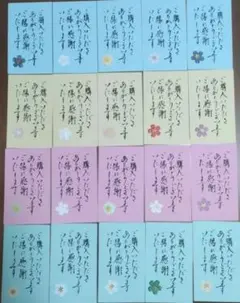 ご購入いただき
ありがとうございます
ご縁に感謝
いたします
ご購入いただき
ありがとうございます
ご縁に感謝
いたします
ご購入いただき
ありがとうございます
ご縁に感謝
いたします
ご購入いただき
ありがとうございます
ご縁に感謝
いたします
ご購入いただき
ありがとうございます
ご縁に感謝
いたします
ご購入いただき
ありがとうございます
ご縁に感謝
いたします
ご購入いただき
ありがとうございます
ご縁に感謝
いたします
ご購入いただき
ありがとうございます
ご縁に感謝
いたします
ご購入いただき
ありがとうございます
ご縁に感謝
いたします
ご購入いただき
ありがとうございます
ご縁に感謝
いたします
ご購入いただき
ありがとうございます
ご縁に感謝
いたします
ご購入いただき
ありがとうございます
ご縁に感謝
いたします
ご購入いただき
ありがとうございます
ご縁に感謝
いたします
ご購入いただき
ありがとうございます
ご縁に感謝
いたします
ご購入いただき
ありがとうございます
ご縁に感謝
いたします
ご購入いただき
ありがとうございます
ご縁に感謝
いたします
ご購入いただき
ありがとうございます
ご縁に感謝
いたします
ご購入いただき
ありがとうございます
ご縁に感謝
いたします
ご購入いただき
ありがとうございます
ご縁に感謝
いたします
ご購入いただき
ありがとうございます
ご縁に感謝
いたします